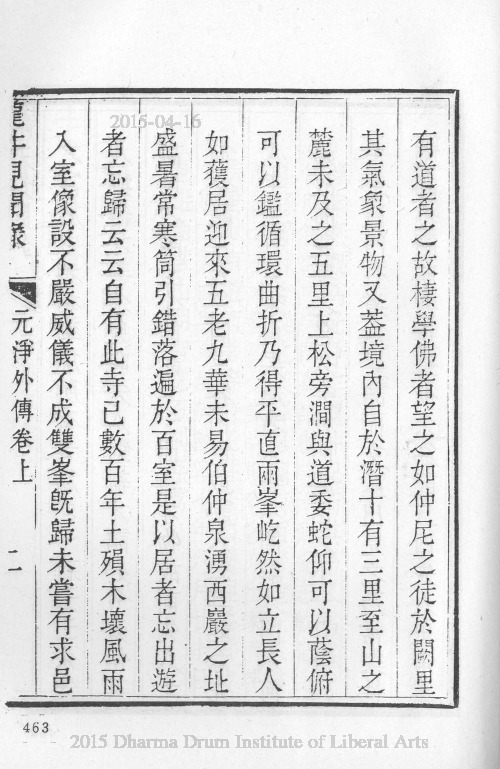 有道者之故棲學佛者望之如仲尼之徒於闕里
其氣象景物又葢境內自於潛十有三里至山之
麓未及之五里上松旁澗與道委蛇仰可以蔭俯
可以鑑循環曲折乃得平直兩峯屹然如立長人
如蒦居迎來五老九華未易伯仲泉湧西巖之址
盛暑常寒筒引錯落遍於百室是以居者忘出遊
者忘歸云云自有此寺已數百年土殞木壞風雨
入室像設不嚴威儀不成雙峯旣歸未嘗有求邑
龍井見聞錄
元淨外傳卷上
二
463
2015-04-16
2015 Dharma Drum Institute of Liberal Arts